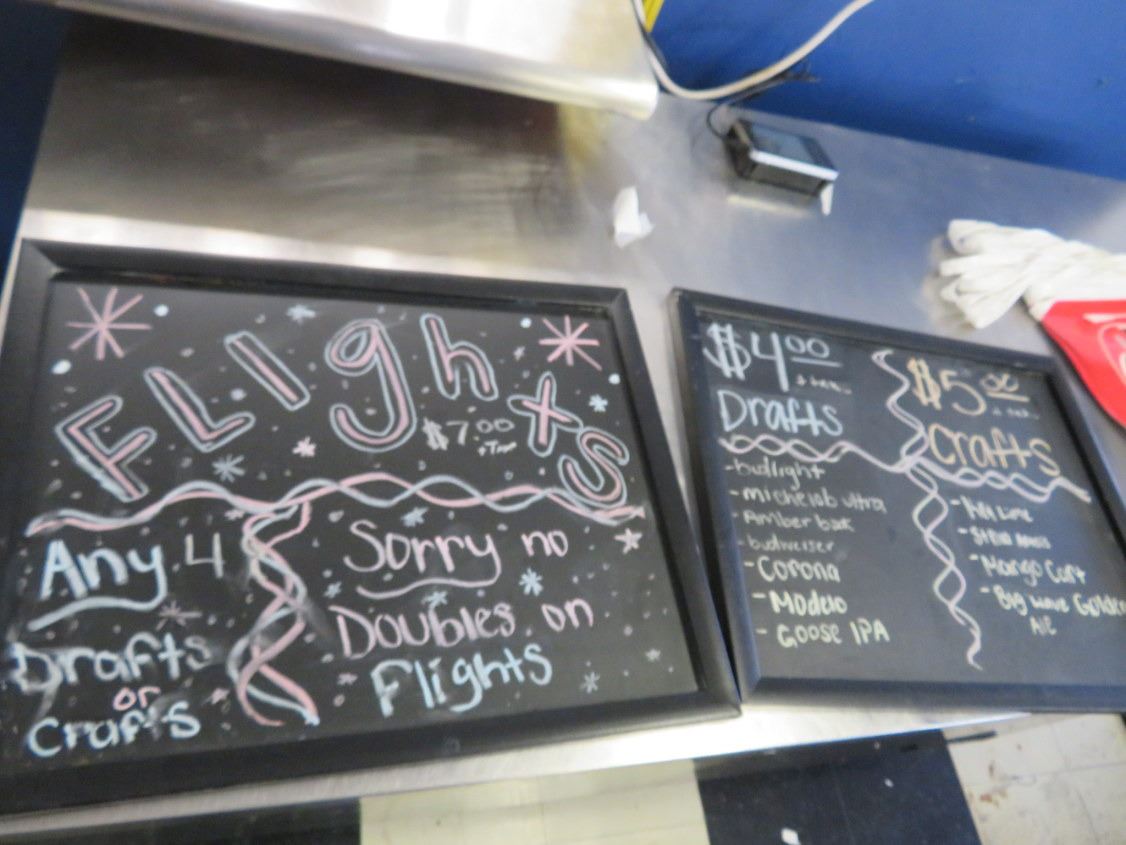 Flights
$7.00
+Tax
Any 4
Drafts
or
Crafts
Sorry no
Doubles on
Flights
$4.00
+ tax
Drafts
- budlight
- michelob ultra
- Amber bock
- budweiser
- Corona
- Modelo
- Goose IPA
$5.00
+ tax
Crafts
- Mango Cart
- Big Wave Golden
Ale